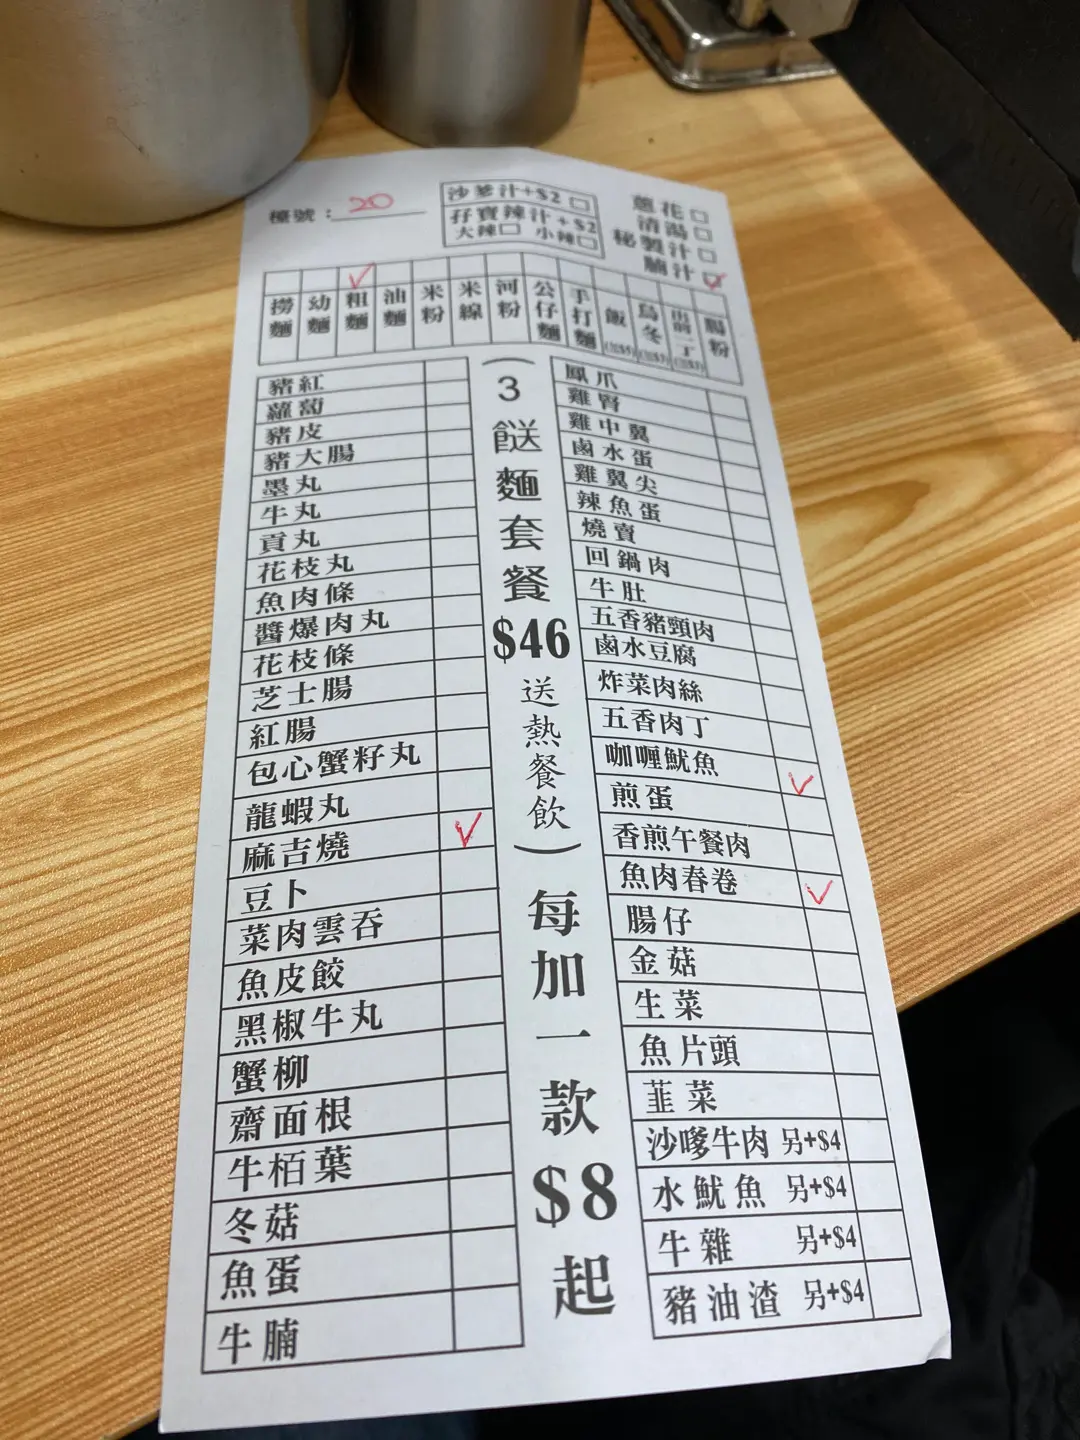 檯號：20
沙爹汁+$2
孖寶辣汁+$2
大辣 小辣
蔥花
清湯
秘製汁
腩汁
撈麵
幼麵
粗麵
油麵
米粉
米線
河粉
公仔麵
手打麵
飯
烏冬
出前一丁
腸粉
豬紅
蘿蔔
豬皮
豬大腸
墨丸
牛丸
貢丸
花枝丸
魚肉條
醬爆肉丸
花枝條
芝士腸
紅腸
包心蟹籽丸
龍蝦丸
麻吉燒
豆卜
菜肉雲吞
魚皮餃
黑椒牛丸
蟹柳
齋面根
牛栢葉
冬菇
魚蛋
牛腩
（3餸麵套餐$46送熱餐飲）每加一款$8起
鳳爪
雞腎
雞中翼
鹵水蛋
雞翼尖
辣魚蛋
燒賣
回鍋肉
牛肚
五香豬頸肉
鹵水豆腐
炸菜肉絲
五香肉丁
咖喱魷魚
煎蛋
香煎午餐肉
魚肉春卷
腸仔
金菇
生菜
魚片頭
韮菜
沙嗲牛肉 另+$4
水魷魚 另+$4
牛雜 另+$4
豬油渣 另+$4